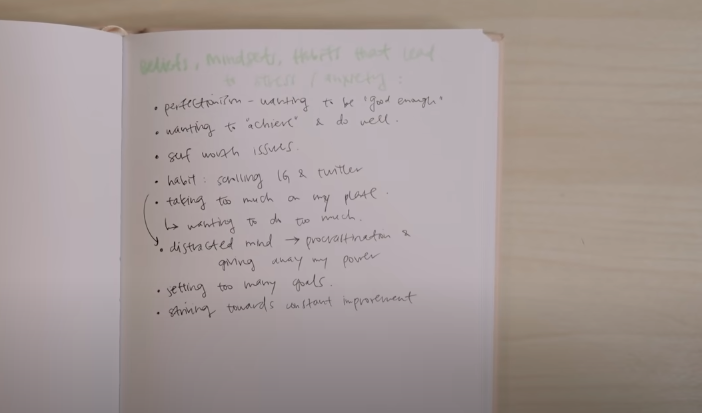 Beliefs, Mindsets, Habits that lead
to stress / anxiety :
• perfectionism - wanting to be "good enough"
• wanting to "achieve" & do well.
• self worth issues.
• habit : scrolling IG & twitter
• taking too much on my plate.
↳ wanting to do too much.
• distracted mind → procrastination &
giving away my power
• setting too many goals.
• striving towards constant improvement